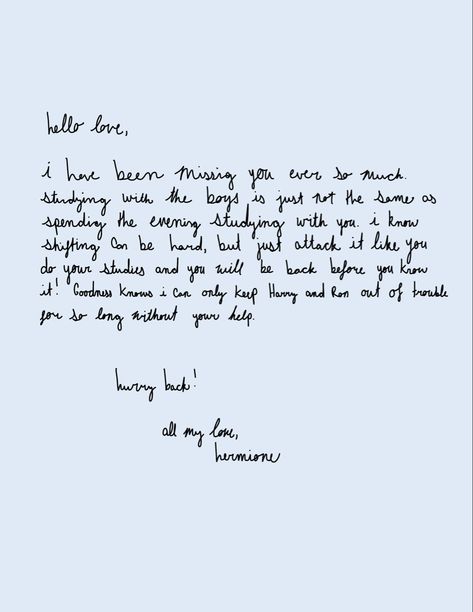 hello love,
i have been missig you ever so much.
studying with the boys is just not the same as
spendig the evening studying with you. i know
shifting can be hard, but just attack it like you
do your studies and you will be back before you know
it! Goodness knows i can only keep Harry and Ron out of trouble
for so long without your help.
hurry back!
all my love,
hermione